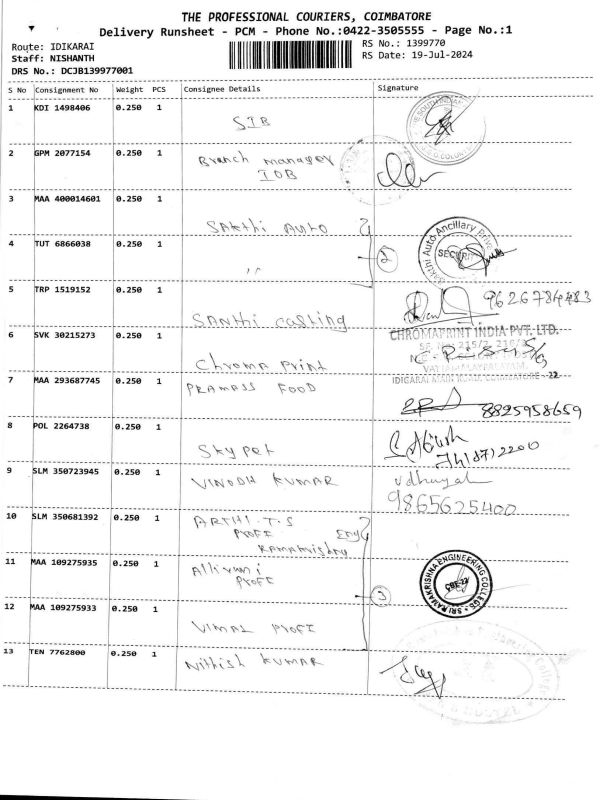 THE PROFESSIONAL COURIERS, COIMBATORE
Delivery Runsheet - PCM - Phone No.:0422-3505555 - Page No.:1
Route: IDIKARAI
RS No.: 1399770
Staff: NISHANTH
RS Date: 19-Jul-2024
DRS No.: DCJB139977001
S No Consignment No Weight PCS Consignee Details Signature
1 KDI 1498406 0.250 1
SIB
2 GPM 2077154 0.250 1 Branch manager
IOB
3 MAA 400014601 0.250 1
SAkthi AUTO
4 TUT 6866038 0.250 1
,, 2
Sakthi Auto Ancillary Priv
SECURIT
5 TRP 1519152 0.250 1
9626784483
SANthi casting
CHROMAPRINT INDIA PVT. LTD.
6 SVK 30215273 0.250 1
Chroma Print
7 MAA 293687745 0.250 1 PRAMASS FOOD
IDIGARAI MAIN ROAD, COIMBATORE - 22
8825958659
8 POL 2264738 0.250 1
Sky pet
9 SLM 350723945 0.250 1 VINODH KUMAR
udhayal
9865625400
10 SLM 350681392 0.250 1 ARTHI.T.S
Proff
11 MAA 109275935 0.250 1
Proff
3
SRI RAMAKRISHNA ENGINEERING COLLEGE
CBE-22
12 MAA 109275933 0.250 1
VIMAL Proff
13 TEN 7762800 0.250 1 Nithish KUMAR